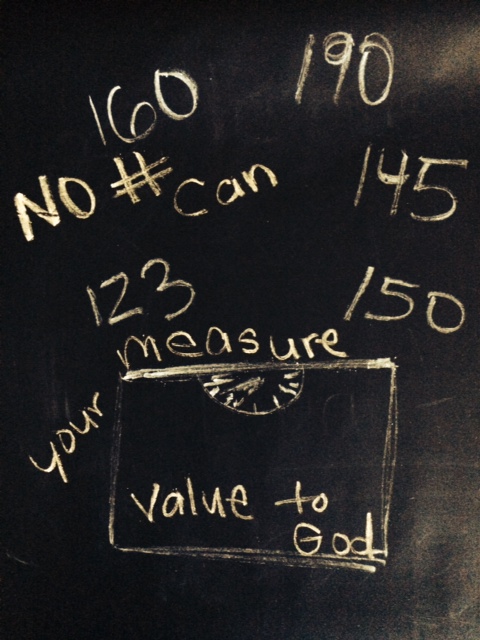 190
160
NO # can
145
123
150
measure
your
value to
God